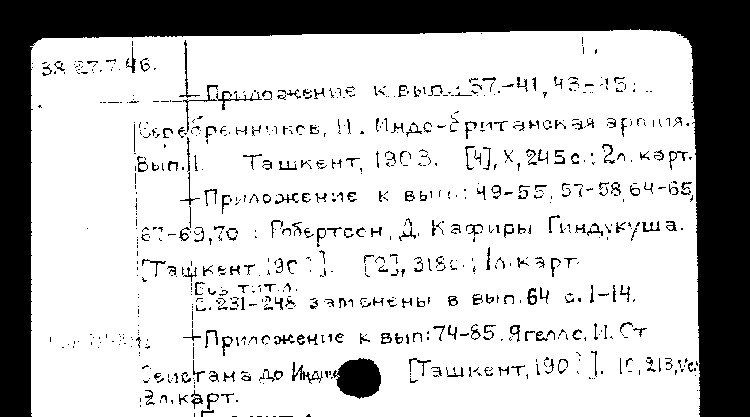 38 27.7.46.
Приложение к вып.: 37.-41, 43-45:
Серебренников, И. Индо-британская армия.
Вып. 1. Ташкент, 1903. [4], X, 245 с.; 2 л. карт.
Приложение к вып.: 49-55, 57-58, 64-65,
67-69, 70 : Робертсон, Д. Кафиры Гиндукуша.
[Ташкент, 190?]. [2], 318 с.; 1 л. карт.
Без тит. л.
С. 231-248 заменены в вып. 64 с. 1-14.
Приложение к вып: 74-85. Ягелло, И. От
Сеистана до [Ташкент, 190?].
2 л. карт.